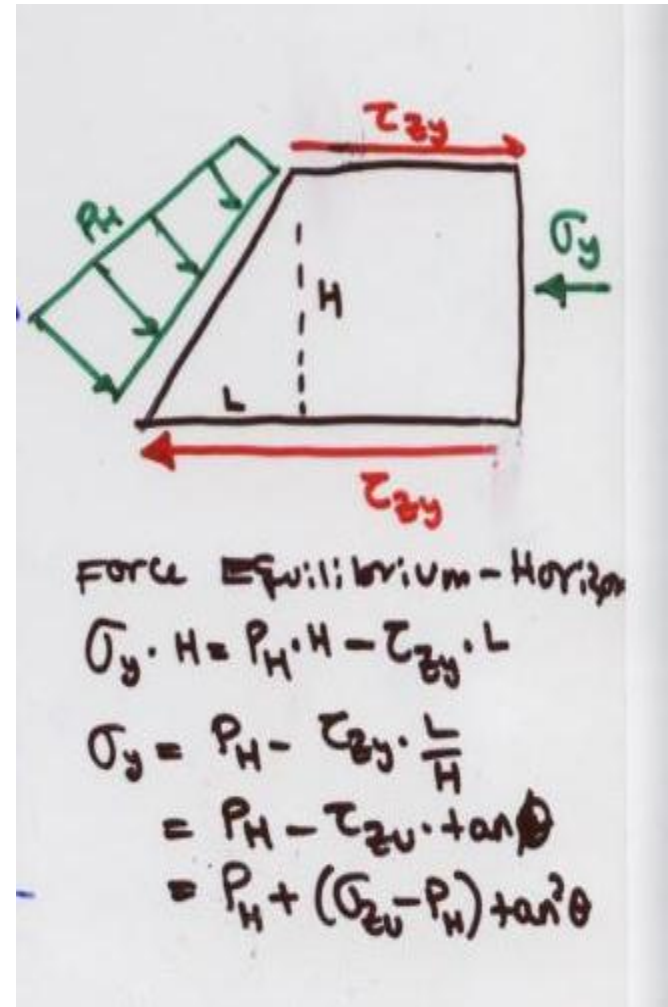 τzy
PH
σy
H
L
τzy
Force Equilibrium - Horizon
σy · H = PH · H − τzy · L
σy = PH − τzy · L/H
= PH − τzu · tan θ
= PH + (σzu − PH) tan²θ